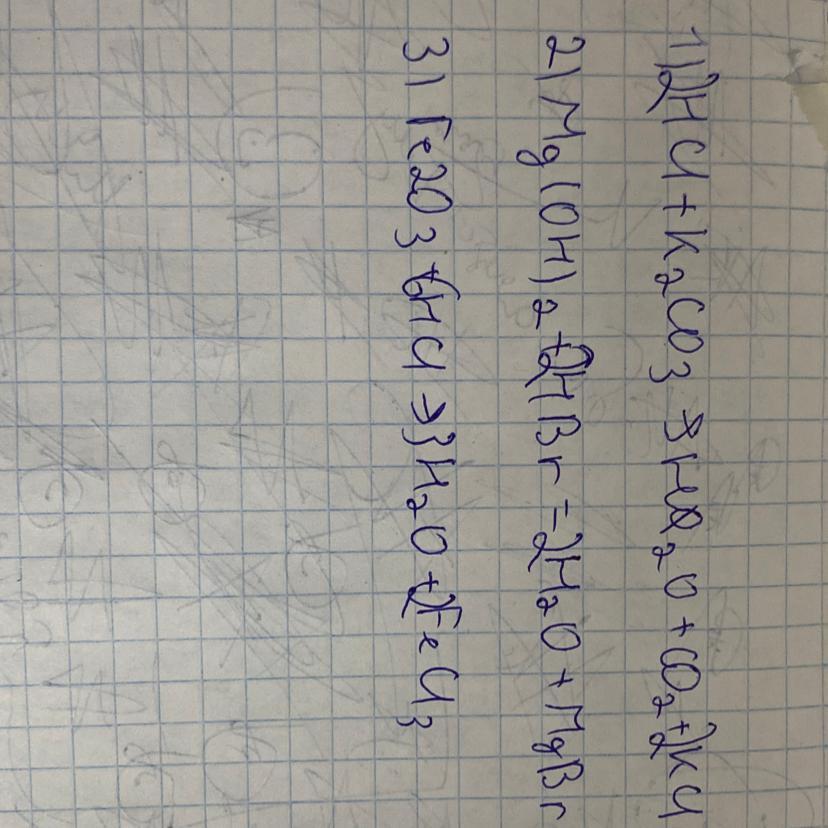 1) 2HCl + K2CO3 → H2O + CO2 + 2KCl
2) Mg(OH)2 + 2HBr = 2H2O + MgBr
3) Fe2O3 + 6HCl → 3H2O + 2FeCl3